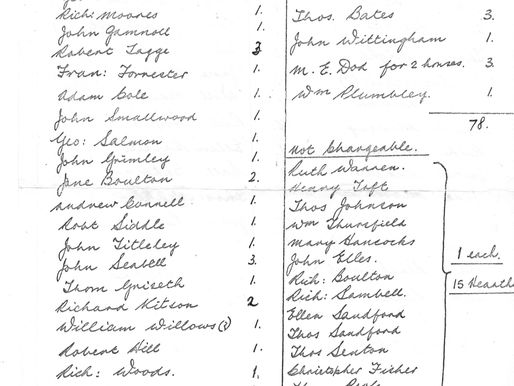 Rich: Moores 1.
John Gamnoll 1.
Robert Tagge 3.
Fran: Forrester 1.
Adam Cole 1.
John Smallwood 1.
Geo: Salmon 1.
John Grimley 1.
Jane Boulton 2.
Andrew Connell 1.
Robt Siddle 1.
John Titteley 1.
John Seabell 3.
Thom Griseth 1.
Richard Kitson 2
William Willows (?) 1.
Robert Hill 1.
Rich: Woods. 1.
Thos. Bates 3.
John Wittingham 1.
M. E. Dod for 2 houses. 3.
Wm Plumbley. 1.
78.
Not Chargeable.
Ruth Warren.
Henry Toft
Thos Johnson
Wm Thursfield
Mary Hancocks
John Elles.
Rich: Boulton
Rich: Sambell.
Ellen Sandford
Thos Sandford
Thos Senton
Christopher Fisher
1 each.
15 Hearths